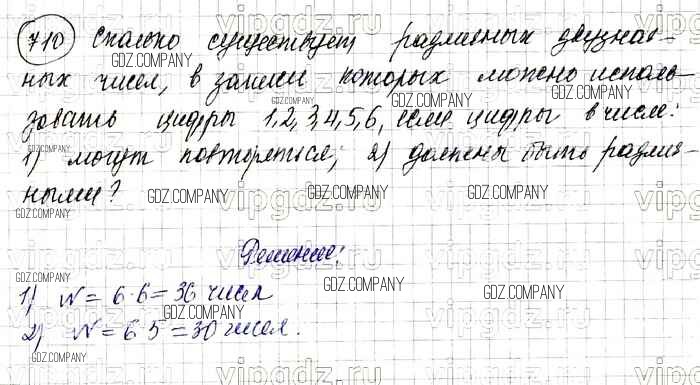 710 Сколько существует различных двузнач-
ных чисел, в записи которых можно исполь-
зовать цифры 1,2,3,4,5,6, если цифры в числе:
1) могут повторяться; 2) должны быть различ-
ными?
Решение:
1) N = 6·6 = 36 чисел
2) N = 6·5 = 30 чисел.
GDZ.COMPANY
vipgdz.ru